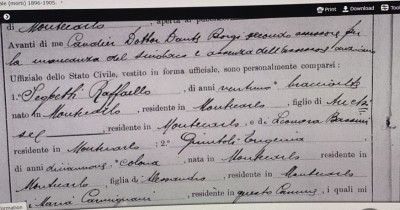 le (morti) 1896-1905.
Print Download Tool
di Montecarlo, aperta al pubblico
Avanti di me Dottor secondo assessore per
la mancanza del Sindaco e assenza dell'assessore anziano
Uffiziale dello Stato Civile, vestito in forma uffiziale, sono personalmente comparsi:
1.° Seghetti Raffaello, di anni ventuno
nato in Montecarlo, residente in Montecarlo, figlio di
residente in Montecarlo, e di Leonora
residente in Montecarlo; 2.° Quintoli Eugenia
di anni diciannove, colona, nata in Montecarlo residente in
Montecarlo, figlia di Alessandro, residente in Montecarlo
i Maria Carmignani, residente in questo Comune, i quali mi
formation